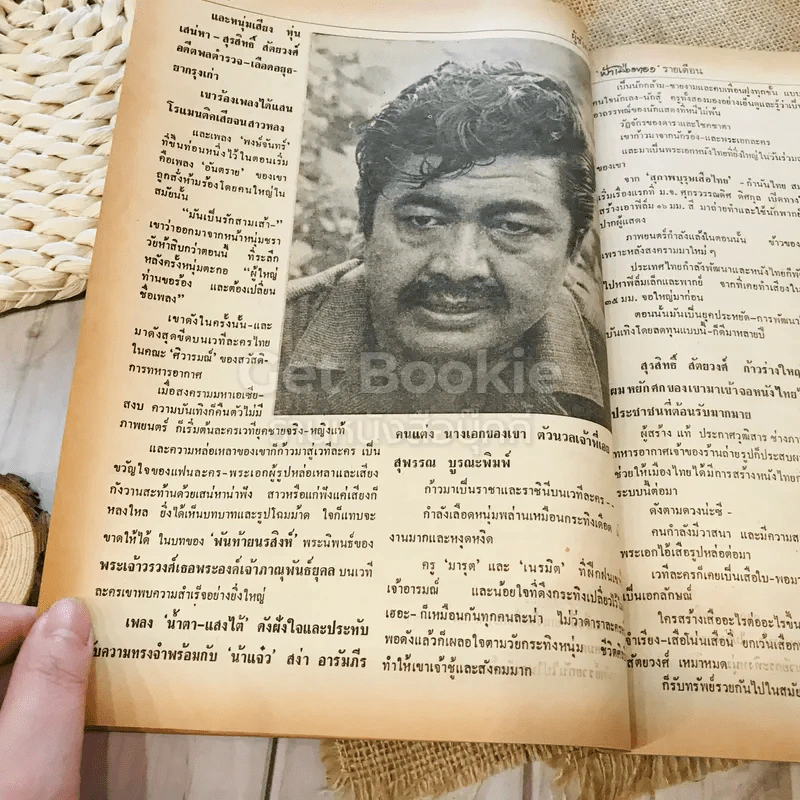 และหนุ่มเสียง ทุ่ม
เสน่หา - สุรสิทธิ์ สัตยวงศ์
อดีตพลตำรวจ - เลือดอยุธ-
ยากรุงเก่า
เขาร้องเพลงได้แสน
โรแมนติคเสียจนสาวหลง
และเพลง 'พงษ์จันทร์'
ที่ขึ้นท่อนหนึ่งไว้ในตอนเริ่ม
คือเพลง 'อันตราย' ของเขา
ถูกสั่งห้ามร้องโดยคนใหญ่ใน
สมัยนั้น
"มันเป็นรักสามเส้า-"
เขาว่าออกมาจากหน้าหนุ่มชรา
วัยห้าสิบกว่าตอนนี้ ที่ระลึก
หลังครั้งหนุ่มตะกอ "ผู้ใหญ่
ท่านขอร้อง และต้องเปลี่ยน
ชื่อเพลง"
เขาดังในครั้งนั้น-และ
มาดังสุดขีดบนเวทีละครไทย
ในคณะ 'ศิวารมณ์' ของสวัสดิ-
การทหารอากาศ
เมื่อสงครามมหาเอเซีย-
สงบ ความบันเทิงก็คืนตัวไม่มี
ภาพยนตร์ ก็เริ่มต้นละครเวทียุคชายจริง-หญิงแท้
และความหล่อเหลาของเขาก็ก้าวมาสู่เวทีละคร เป็น
ขวัญใจของแฟนละคร-พระเอกผู้รูปหล่อเหลาและเสียง
กังวานสะท้านด้วยเสน่ห์น่าฟัง สาวหรือแก่ฟังแค่เสียงก็
หลงใหล ยิ่งได้เห็นบทบาทและรูปโฉมม้าด ใจก็แทบจะ
ขาดให้ได้ ในบทของ 'พันท้ายนรสิงห์' พระนิพนธ์ของ
พระเจ้าวรวงศ์เธอพระองค์เจ้าภาณุพันธ์ยุคล บนเวที
ละครเขาพบความสำเร็จอย่างยิ่งใหญ่
เพลง 'น้ำตา-แสงใต้' ดังฝั่งใจและประทับ
กับความทรงจำพร้อมกับ 'น้าแจ๋ว' สง่า อารัมภีร
คนแต่ง นางเอกของเขา ตัวนวลเจ้าพี่เอย
สุพรรณ บูรณะพิมพ์
ก้าวมาเป็นราชาและราชินีบนเวทีละคร-
กำลังเลือดหนุ่มพล่านเหมือนกระทิงเดือด
งานมากและหงุดหงิด
ครู 'มารุต' และ 'เนรมิต' ที่ฝึกฝน
เจ้าอารมณ์ และน้อยใจที่ดึงกระทิงเปลี่ยว
เฮอะ- ก็เหมือนกันทุกคนละน่า ไม่ว่าดาราละคร
พอดังแล้วก็เผลอใจตามวัยกระทิงหนุ่ม ชีวิต
ทำให้เขาเจ้าชู้และสังคมมาก
'ฟ้าเมืองทอง' รายเดือน
เป็นนักกล้าม-ชายงามและคบเพื่อนฝูงทุกชั้น แบบ
คนใจนักเลง-นักสู้ ครูทั้งสองมองอย่างเอ็นดูและรู้ว่าเป็น
อาถรรพณ์ของนักแสดงที่หนีไม่พ้น
วัฏจักรของดาราและโชคชาตา
เขาก้าวมาจากนักร้อง-และพระเอกละคร
และมาเป็นพระเอกหนังไทยที่ยิ่งใหญ่ในวันร่วม
ของเขา
จาก 'สุภาพบุรุษเสือไทย' - กำนันไทย
เริ่มเรื่องแรกที่ ม.จ. ศุกรวรรณดิศ ดิศกุล เบิดทาง
สร้างเอาฟิล์ม ๑๖ มม. สี มาถ่ายทำและใช้นักพากย์
ปากผู้แสดง
ภาพยนตร์กำลังแล้งในตอนนั้น ข้าวของ
เพราะหลังสงครามมาใหม่ ๆ
ประเทศไทยกำลังพัฒนาและหนังไทยก็
ไปหาฟิล์มเล็กและพากย์ จากที่เคยทำเสียงใน
๓๕ มม. จอใหญ่มาก่อน
ตอนนั้นมันเป็นยุคประหยัด-การพัฒนา
บันเทิงโดยลดทุนแบบนี้-ก็ดีมาหลายปี
สุรสิทธิ์ สัตยวงศ์ ก้าวร่างใหญ่
ผมหยักศกของเขามาเข้าจอหนังไทย
ประชาชนที่ต้อนรับมากมาย
ผู้สร้าง แท้ ประกาศวุฒิสาร ช่างภาพ
ทหารอากาศเจ้าของร้านถ่ายรูปก็ประสบ
ช่วยให้เมืองไทยได้มีการสร้างหนังไทย
ระบบนี้ต่อมา
ดังตามดวงน่ะซี -
คนกำลังมีวาสนา และมีความ
พระเอกไอ้เสือรูปหล่อต่อมา
เวทีละครก็เคยเป็นเสือใบ-พอมา
เป็นเอกลักษณ์
ใครสร้างเสืออะไรต่ออะไรขึ้น
จำเรียง-เสือโน่นเสือนี่ ยกเว้นเสือ
สัตยวงศ์ เหมาหมด
ก็รับทรัพย์รวยกันไปในสมัย
Get Bookie